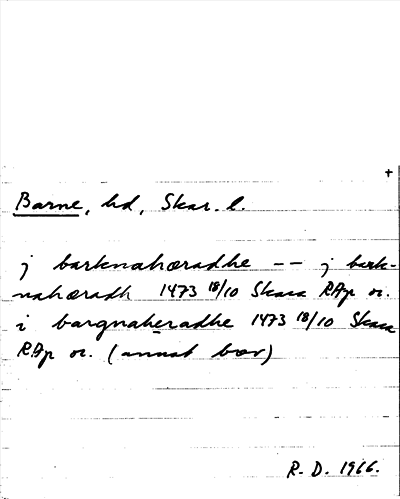 †
Barne, hd, Skar. l.
j barknahæradhe -- j bark-
nahæradh 1473 18/10 Skara RAp or.
i bargnaheradhe 1473 18/10 Skara
RAp or. (annat brev)
R. D. 1966.